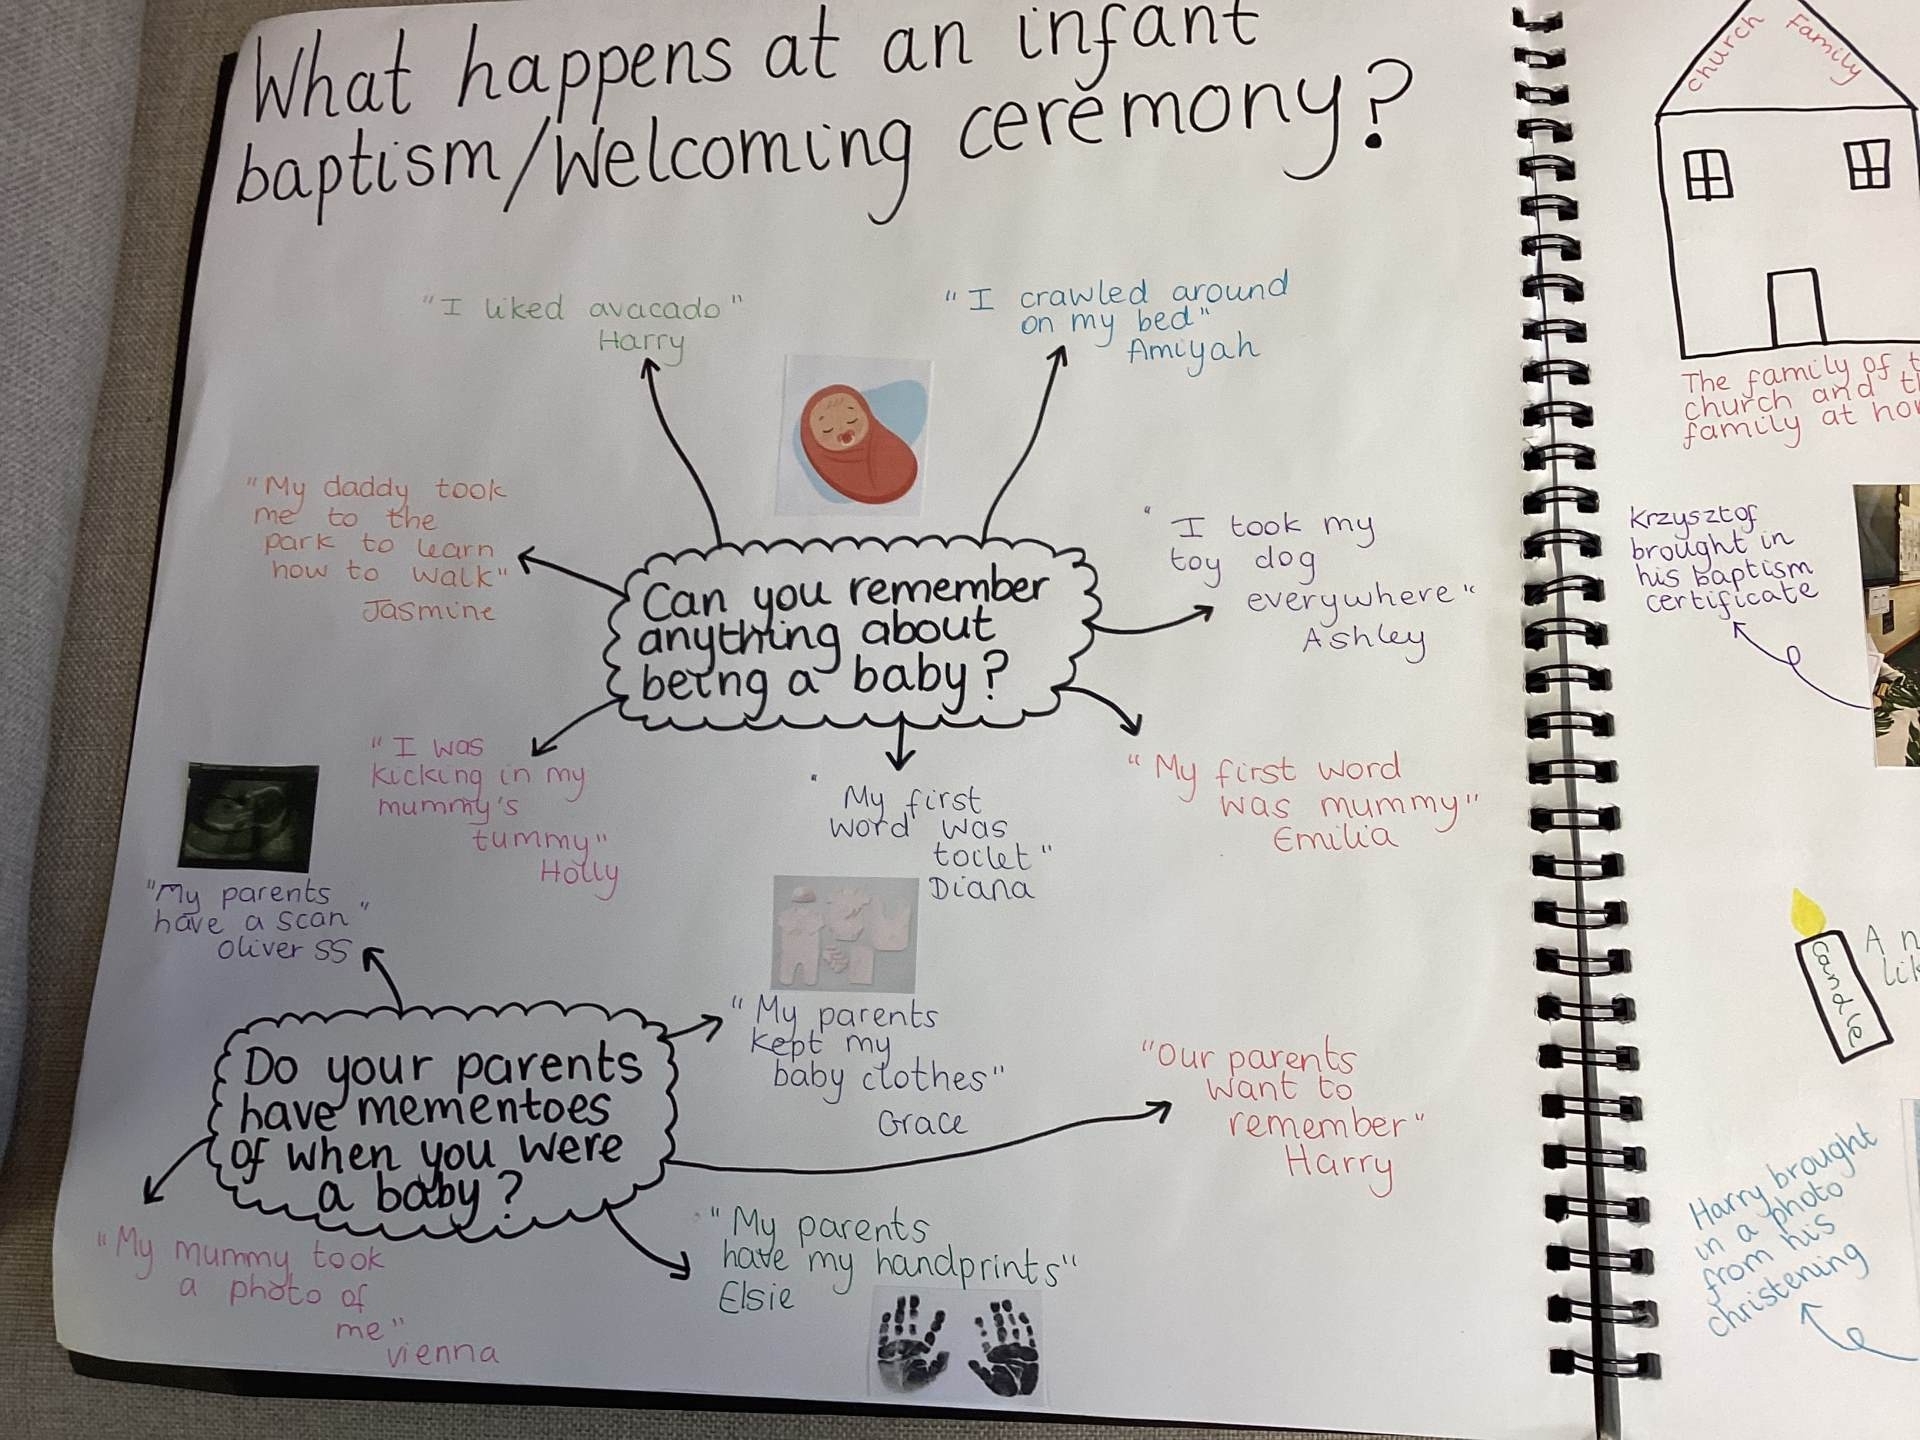 What happens at an infant
baptism/Welcoming ceremony?
"I liked avacado"
Harry
"I crawled around
on my bed"
Amiyah
"My daddy took
me to the
park to learn
how to walk"
Jasmine
Can you remember
anything about
being a baby?
"I took my
toy dog
everywhere"
Ashley
"I was
kicking in my
mummy's
tummy"
Holly
"My first
word was
toilet"
Diana
"My first word
was mummy"
Emilia
"My parents
have a scan"
Oliver SS
Do your parents
have mementoes
of when you were
a baby?
"My parents
kept my
baby clothes"
Grace
"Our parents
want to
remember"
Harry
"My mummy took
a photo of
me"
vienna
"My parents
have my handprints"
Elsie
church Family
The family of
church and
family at
Krzysztof
brought in
his baptism
certificate
candle
A
Harry brought
in a photo
from his
christening